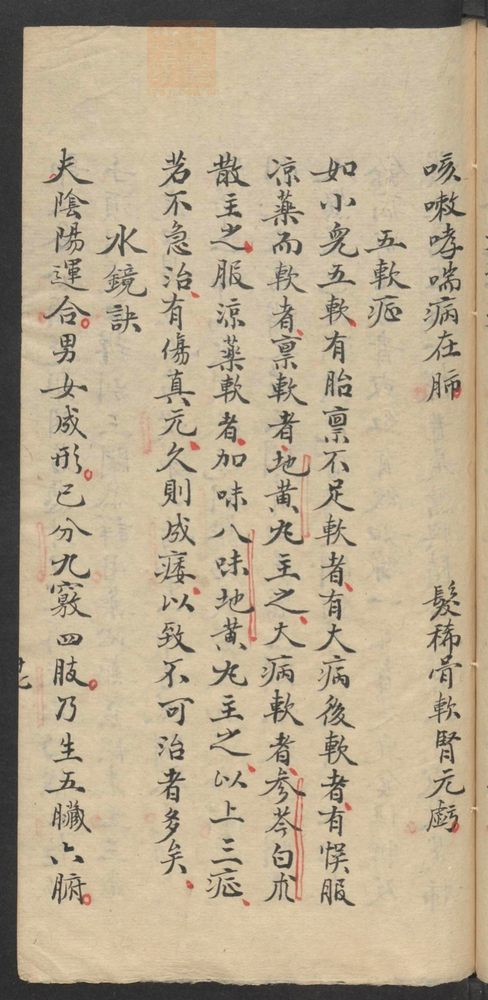 咳嗽哮喘病在肺　髮稀骨軟腎元虧
五軟症
如小兒五軟、有胎禀不足軟者、有大病後軟者、有悮服
凉藥而軟者、禀軟者、地黃丸主之、大病軟者、參苓白朮
散主之、服涼藥軟者、加味八味地黃丸主之、以上三症、
若不急治、有傷真元、久則成痿、以致不可治者多矣、
水鏡訣
夫陰陽運合。男女成形。已分九竅四肢。乃生五臟六腑。